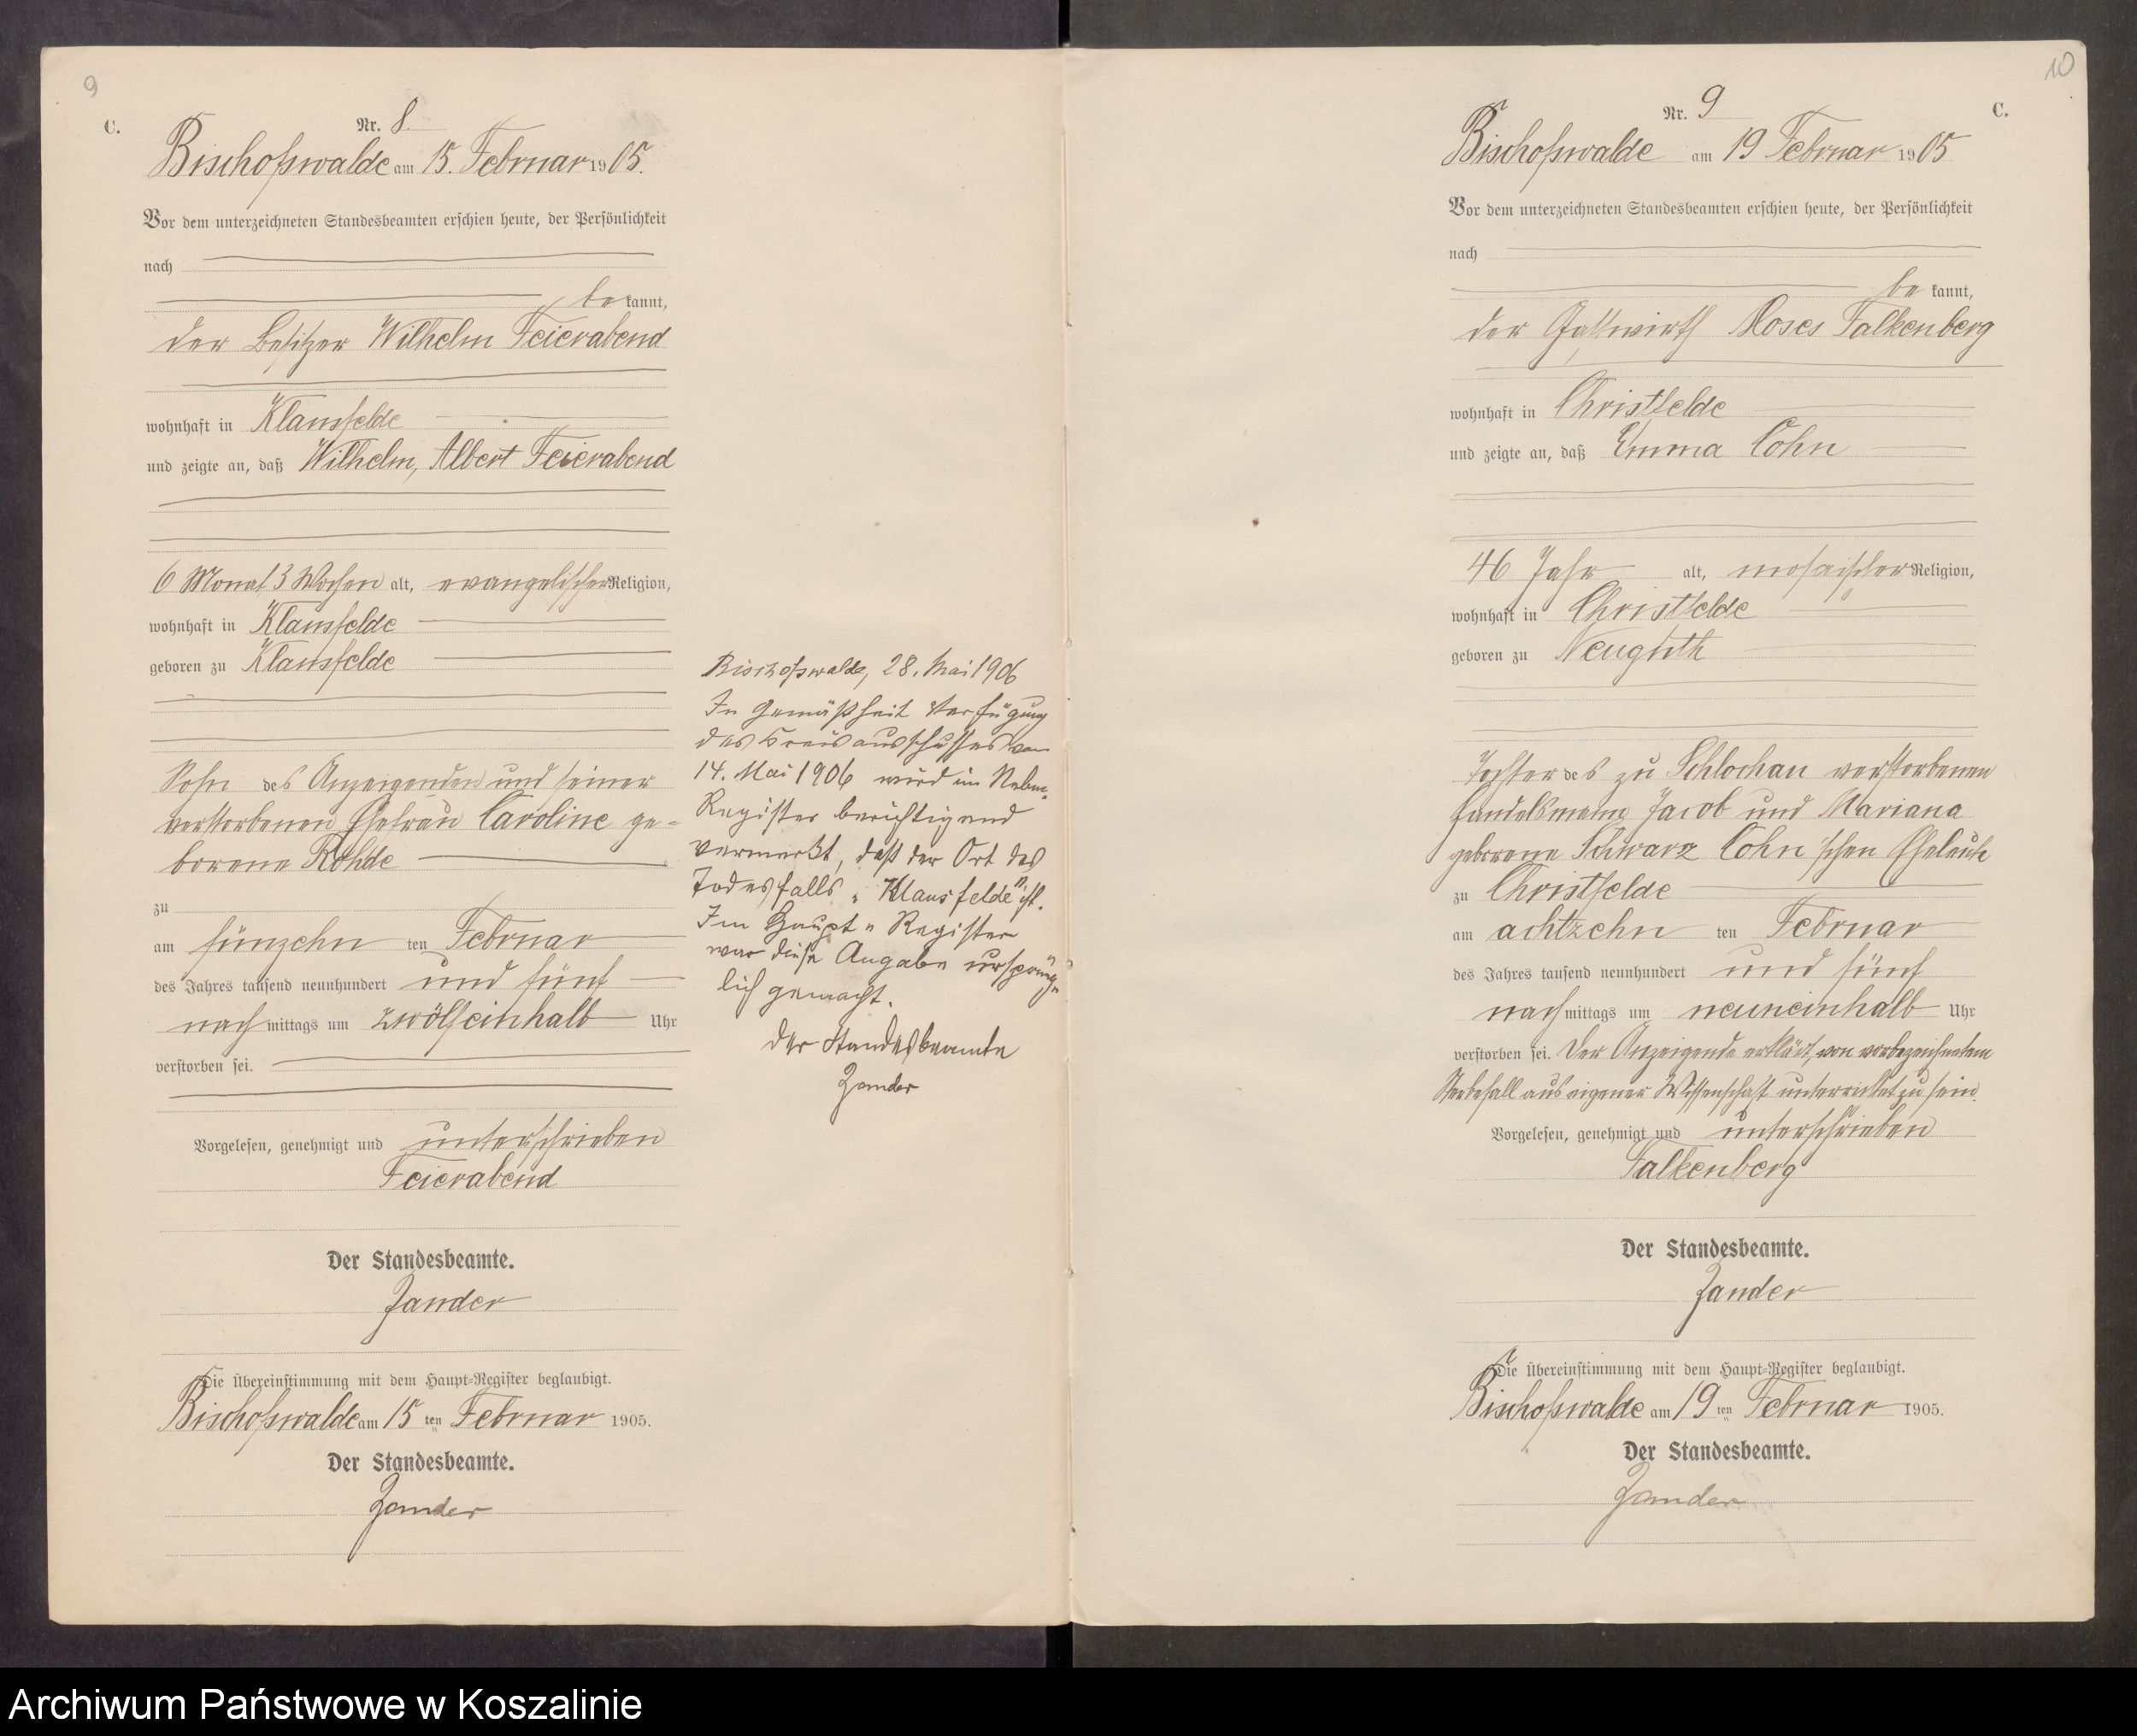 9
C.
Nr. 8.
Bischofswalde am 15. Februar 1905.
Vor dem unterzeichneten Standesbeamten erschien heute, der Persönlichkeit
nach
be kannt,
der Besitzer Wilhelm Feierabend
wohnhaft in Klausfelde
und zeigte an, daß Wilhelm, Albert Feierabend
6 Monat 3 Wochen alt, evangelischer Religion,
wohnhaft in Klausfelde
geboren zu Klausfelde
Sohn des Anzeigenden und seiner
verstorbenen Ehefrau Caroline ge-
borene Rohde
zu
am fünzehn ten Februar
des Jahres tausend neunhundert und fünf
nach mittags um zwölfeinhalb Uhr
verstorben sei.
Vorgelesen, genehmigt und unterschrieben
Feierabend
Der Standesbeamte.
Zander
Die Übereinstimmung mit dem Haupt-Register beglaubigt.
Bischofswalde am 15 ten Februar 1905.
Der Standesbeamte.
Zander
Bischofswalde, 28. Mai 1906
In Gemäßheit Verfügung
des Kreisausschusses vom
14. Mai 1906 wird im Neben-
Register berichtigend
vermerkt, daß der Ort des
Todesfalls „Klausfelde" ist.
Im Haupt-Register
war diese Angabe ursprüng-
lich gemacht.
Der Standesbeamte
Zander
10
C.
Nr. 9
Bischofswalde am 19 Februar 1905
Vor dem unterzeichneten Standesbeamten erschien heute, der Persönlichkeit
nach
be kannt,
der Gastwirth Moses Falkenberg
wohnhaft in Christfelde
und zeigte an, daß Emma Cohn
46 Jahr alt, mosaischer Religion,
wohnhaft in Christfelde
geboren zu Neuguth
Tochter des zu Schlochau verstorbenen
Handelsmann Jacob und Mariana
geborene Schwarz Cohn'schen Eheleute
zu Christfelde
am achtzehn ten Februar
des Jahres tausend neunhundert und fünf
nach mittags um neuneinhalb Uhr
verstorben sei. Der Anzeigende erklärt, von vorbezeichnetem
Sterbefall aus eigener Wissenschaft unterrichtet zu sein.
Vorgelesen, genehmigt und unterschrieben
Falkenberg
Der Standesbeamte.
Zander
Die Übereinstimmung mit dem Haupt-Register beglaubigt.
Bischofswalde am 19 ten Februar 1905.
Der Standesbeamte.
Zander
Archiwum Państwowe w Koszalinie